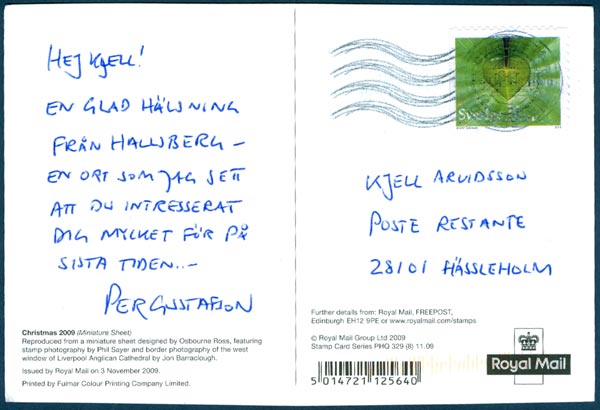 HEJ KJELL!
EN GLAD HÄLSNING
FRÅN HALLSBERG –
EN ORT SOM JAG SETT
ATT DU INTRESSERAT
DIG MYCKET FÖR PÅ
SISTA TIDEN..–
PER GUSTAFSON
Christmas 2009 (Miniature Sheet)
Reproduced from a miniature sheet designed by Osbourne Ross, featuring
stamp photography by Phil Sayer and border photography of the west
window of Liverpool Anglican Cathedral by Jon Barraclough.
Issued by Royal Mail on 3 November 2009.
Printed by Fulmar Colour Printing Company Limited.
Sverige
KJELL ARVIDSSON
POSTE RESTANTE
28101 HÄSSLEHOLM
Further details from: Royal Mail, FREEPOST,
Edinburgh EH12 9PE or www.royalmail.com/stamps
© Royal Mail Group Ltd 2009
Stamp Card Series PHQ 329 (8) 11.09
5 014721 125640
Royal Mail